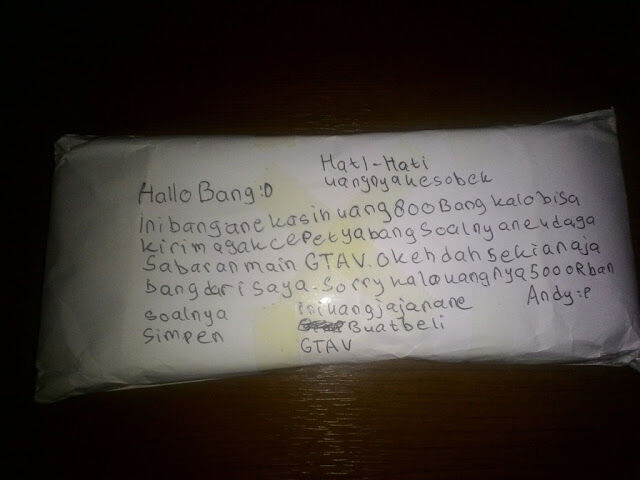 Hati-Hati
uangnya kesobek
Hallo Bang :D
Ini bang ane kasih uang 800 Bang kalo bisa
kirim agak cepet ya bang soalnya ane udaga
sabaran main GTAV. Okeh dah sekian aja
bang dari saya. Sorry kalo uangnya 5000Rban
soalnya ini uang jajan ane Andy :p
simpen Buat beli
GTAV